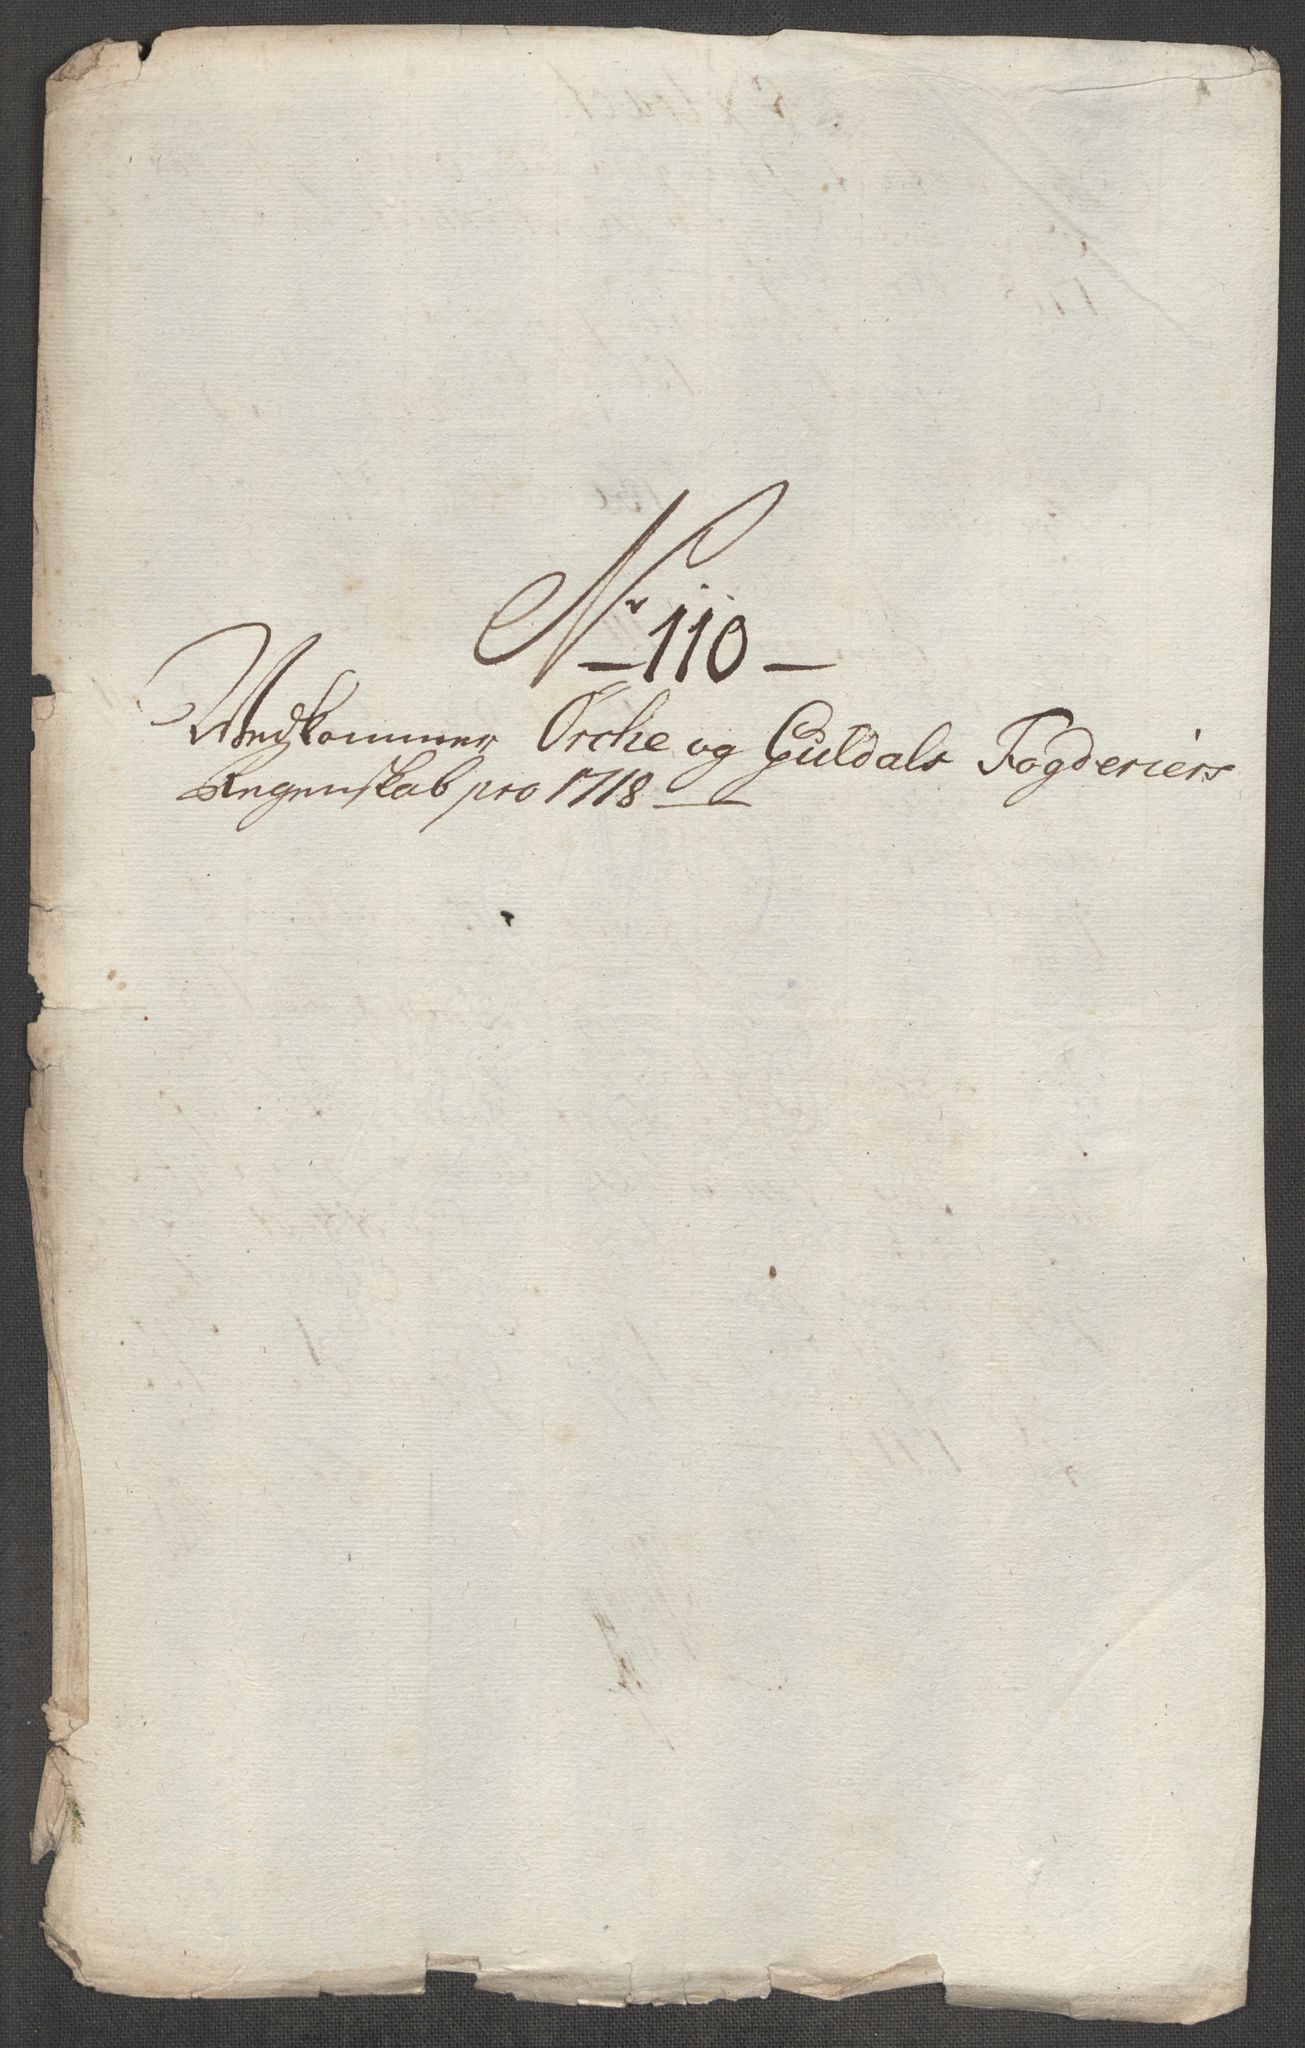 Nr 110
Vedkommer Örche og Guldals Fogderiers
Regenskab pro 1718